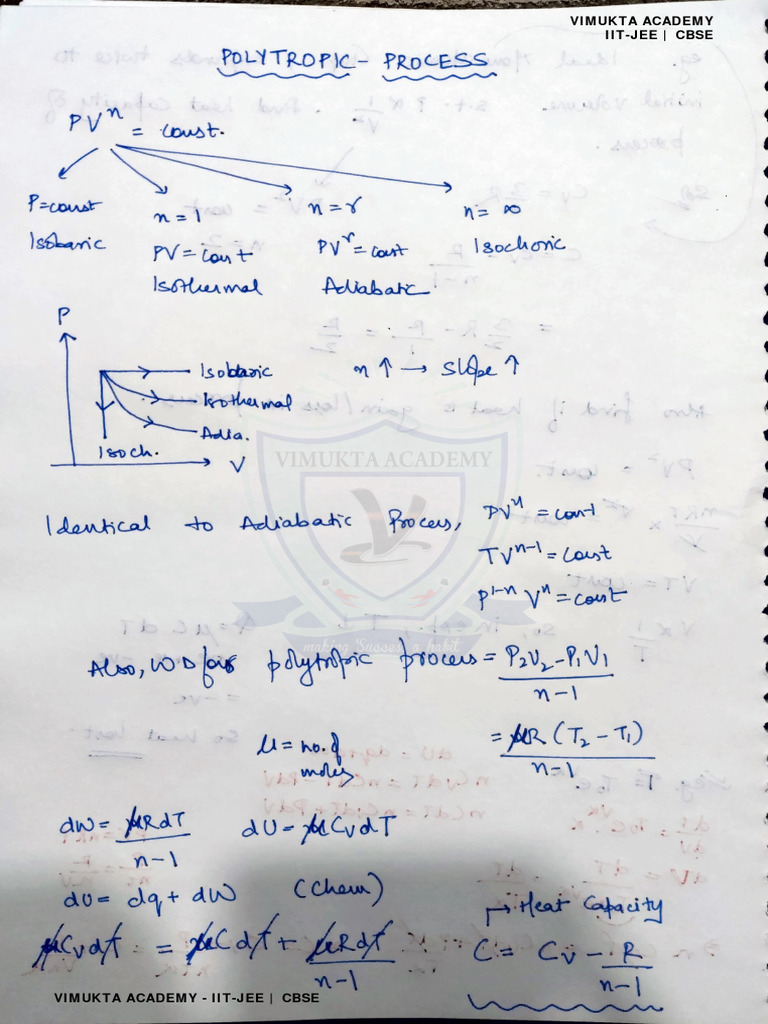 VIMUKTA ACADEMY
IIT-JEE | CBSE
POLYTROPIC - PROCESS
PVⁿ = const.
P=const
Isobaric
n = 1
PV = const
Isothermal
n = r
PVʳ = const
Adiabatic
n = ∞
Isochoric
P
Isobaric
Isothermal
Adia.
Isoch.
V
n ↑ → Slope ↑
VIMUKTA ACADEMY
making Success a habit
Identical to Adiabatic Process,
PVⁿ = const
TVⁿ⁻¹ = const
P¹⁻ⁿ Vⁿ = const
Also, WD for polytropic process = P₂V₂ - P₁V₁ / n-1
μ = no. of moles
= μR (T₂ - T₁) / n-1
dW = μRdT / n-1
dU = μCvdT
dU = dq + dW (Chem)
μCvdT = μCdT + μRdT / n-1
→ Heat Capacity
C = Cv - R / n-1
VIMUKTA ACADEMY - IIT-JEE | CBSE